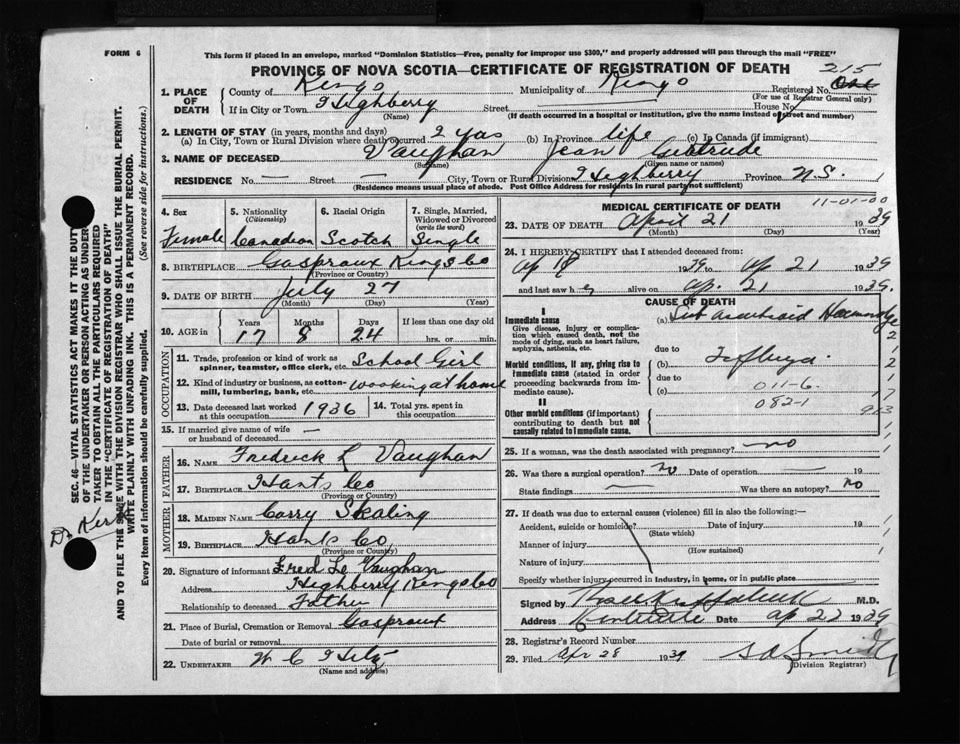 FORM 6
This form if placed in an envelope, marked "Dominion Statistics—Free, penalty for improper use $300," and properly addressed will pass through the mail "FREE"
PROVINCE OF NOVA SCOTIA—CERTIFICATE OF REGISTRATION OF DEATH 215
1. PLACE OF DEATH County of Kings Municipality of Kings Registered No.
(For use of Registrar General only)
If in City or Town Highberry Street House No.
(Name) (If death occurred in a hospital or institution, give the name instead of street and number)
2. LENGTH OF STAY (in years, months and days)
(a) In City, Town or Rural Division where death occurred 2 yrs (b) In Province life (c) In Canada (if immigrant)
3. NAME OF DECEASED Vaughan Jean Gertrude
(Surname) (Given name or names)
RESIDENCE No. — Street — City, Town or Rural Division Highberry Province N.S.
(Residence means usual place of abode. Post Office Address for residents in rural parts not sufficient)
4. Sex Female
5. Nationality (Citizenship) Canadian
6. Racial Origin Scotch
7. Single, Married, Widowed or Divorced (write the word) Single
8. BIRTHPLACE Gaspraux Kings Co
(Province or Country)
9. DATE OF BIRTH July 27
(Month) (Day) (Year)
10. AGE in Years Months Days If less than one day old
17 8 24 hrs. or min.
OCCUPATION
11. Trade, profession or kind of work as spinner, teamster, office clerk, etc. School Girl
12. Kind of industry or business, as cotton-mill, lumbering, bank, etc. working at home
13. Date deceased last worked at this occupation 1936
14. Total yrs. spent in this occupation
15. If married give name of wife or husband of deceased —
FATHER
16. NAME Fredrick L Vaughan
17. BIRTHPLACE Hants Co
(Province or Country)
MOTHER
18. MAIDEN NAME Carry Skaling
19. BIRTHPLACE Hants Co,
(Province or Country)
20. Signature of informant Fred Le Vaughan
Address Highberry Kings Co
Relationship to deceased Father
21. Place of Burial, Cremation or Removal Gaspraux
Date of burial or removal
22. UNDERTAKER W C
(Name and address)
MEDICAL CERTIFICATE OF DEATH 11-01-00
23. DATE OF DEATH April 21 1939
(Month) (Day) (Year)
24. I HEREBY CERTIFY that I attended deceased from:
Ap 18 1939 to Ap 21 1939
and last saw her alive on Ap. 21 1939.
CAUSE OF DEATH
I
Immediate cause
Give disease, injury or complication which caused death, not the mode of dying, such as heart failure, asphyxia, asthenia, etc.
(a)
due to
Morbid conditions, if any, giving rise to immediate cause (stated in order proceeding backwards from immediate cause).
(b)
due to
(c) 011-6.
082-1
II
Other morbid conditions (if important) contributing to death but not causally related to immediate cause.
25. If a woman, was the death associated with pregnancy? no
26. Was there a surgical operation? no Date of operation — 19
State findings — Was there an autopsy? no
27. If death was due to external causes (violence) fill in also the following:—
Accident, suicide or homicide? Date of injury 19
(State which)
Manner of injury
(How sustained)
Nature of injury
Specify whether injury occurred in industry, in home, or in public place
Signed by M.D.
Address Date Ap 22 1939
28. Registrar's Record Number
29. Filed Apr 28 1939
(Division Registrar)
SEC. 46—VITAL STATISTICS ACT MAKES IT THE DUTY OF THE UNDERTAKER OR PERSON ACTING AS UNDERTAKER TO OBTAIN ALL THE PARTICULARS REQUIRED IN THE "CERTIFICATE OF REGISTRATION OF DEATH" AND TO FILE THE SAME WITH THE DIVISION REGISTRAR WHO SHALL ISSUE THE BURIAL PERMIT.
WRITE PLAINLY WITH UNFADING INK. THIS IS A PERMANENT RECORD.
Every item of information should be carefully supplied. (See reverse side for instructions.)